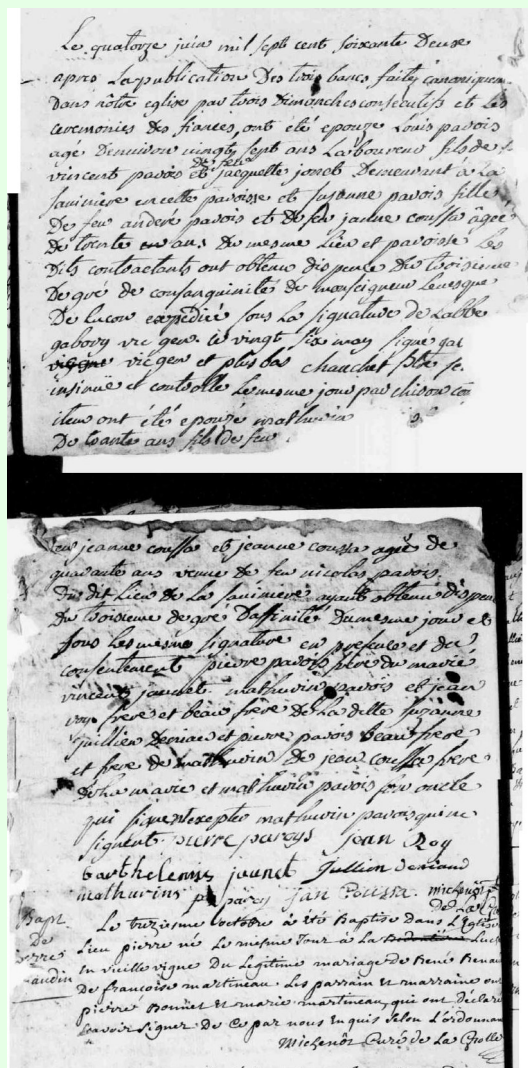 Le quatorze juin mil sept cent soixante Deuse
apres La publication Des trois bancs faits canoniquem
Dans nôtre eglise par trois Dimanches consecutifs et Les
ceremonies Des fiances, ont été epouze Louis pavois
agé Denviron vingt sept ans Laboureur fils de
vincent pavois et de feue jacquette jonet Demeurant à La
saviniere en cette paroisse et Suzanne pavois fille
De feu anderé pavois et de feu jeanne coussa âgée
De trente ans Du mesme Lieu et paroisse Les
Dits contractants ont obtenu dispence Du troisieme
Degré de consanguinité de monseigneur Levesque
De Lucon expédiée sous La signature de Labbe
gabory vic gen. le vingt six may signé ga
vic gen et plus bas chauchet ptre se
insinue et controlle Le mesme jour par chison con
ont été epouze mathurin
De trante ans fils de feu
feu jeanne coussa et jeanne coussa agée de
quarante ans veuve De feu nicolas pavois
Du dit Lieu De La saviniere ayants obtenu dispence
Du troisieme degré Daffinité Du mesme jour et
sous Les mesme signature en presence et du
consentement pierre pavois père du marié
vincent jaunet mathurin pavois et jean
roy frere et beau frere De La ditte suzanne
jullien Deniau et pierre pavois beau frere
et frere de mathurin De jean coussa frere
De La mariée et mathurin pavois son oncle
qui signent excepter mathurin pavois qui ne
signent pierre paroys jean Roy
barthelemy jaunet Jullien deniaud
mathurins parois jan Coussa michenot
de La
Bapt.
De
pierre
Le treziesme octobre à été Baptise dans L'Eglise
Lieu pierre né Le mesme Jour à La
En vieille vigne Du Legitime mariage de René Renau
De francoise martineau Les parrain et marraine on
pierre Bonnet et marie martineau, qui ont Déclaré
scavoir signer De ce par nous Enquis selon L'ordonnan
Michenôt Curé de La Grolle